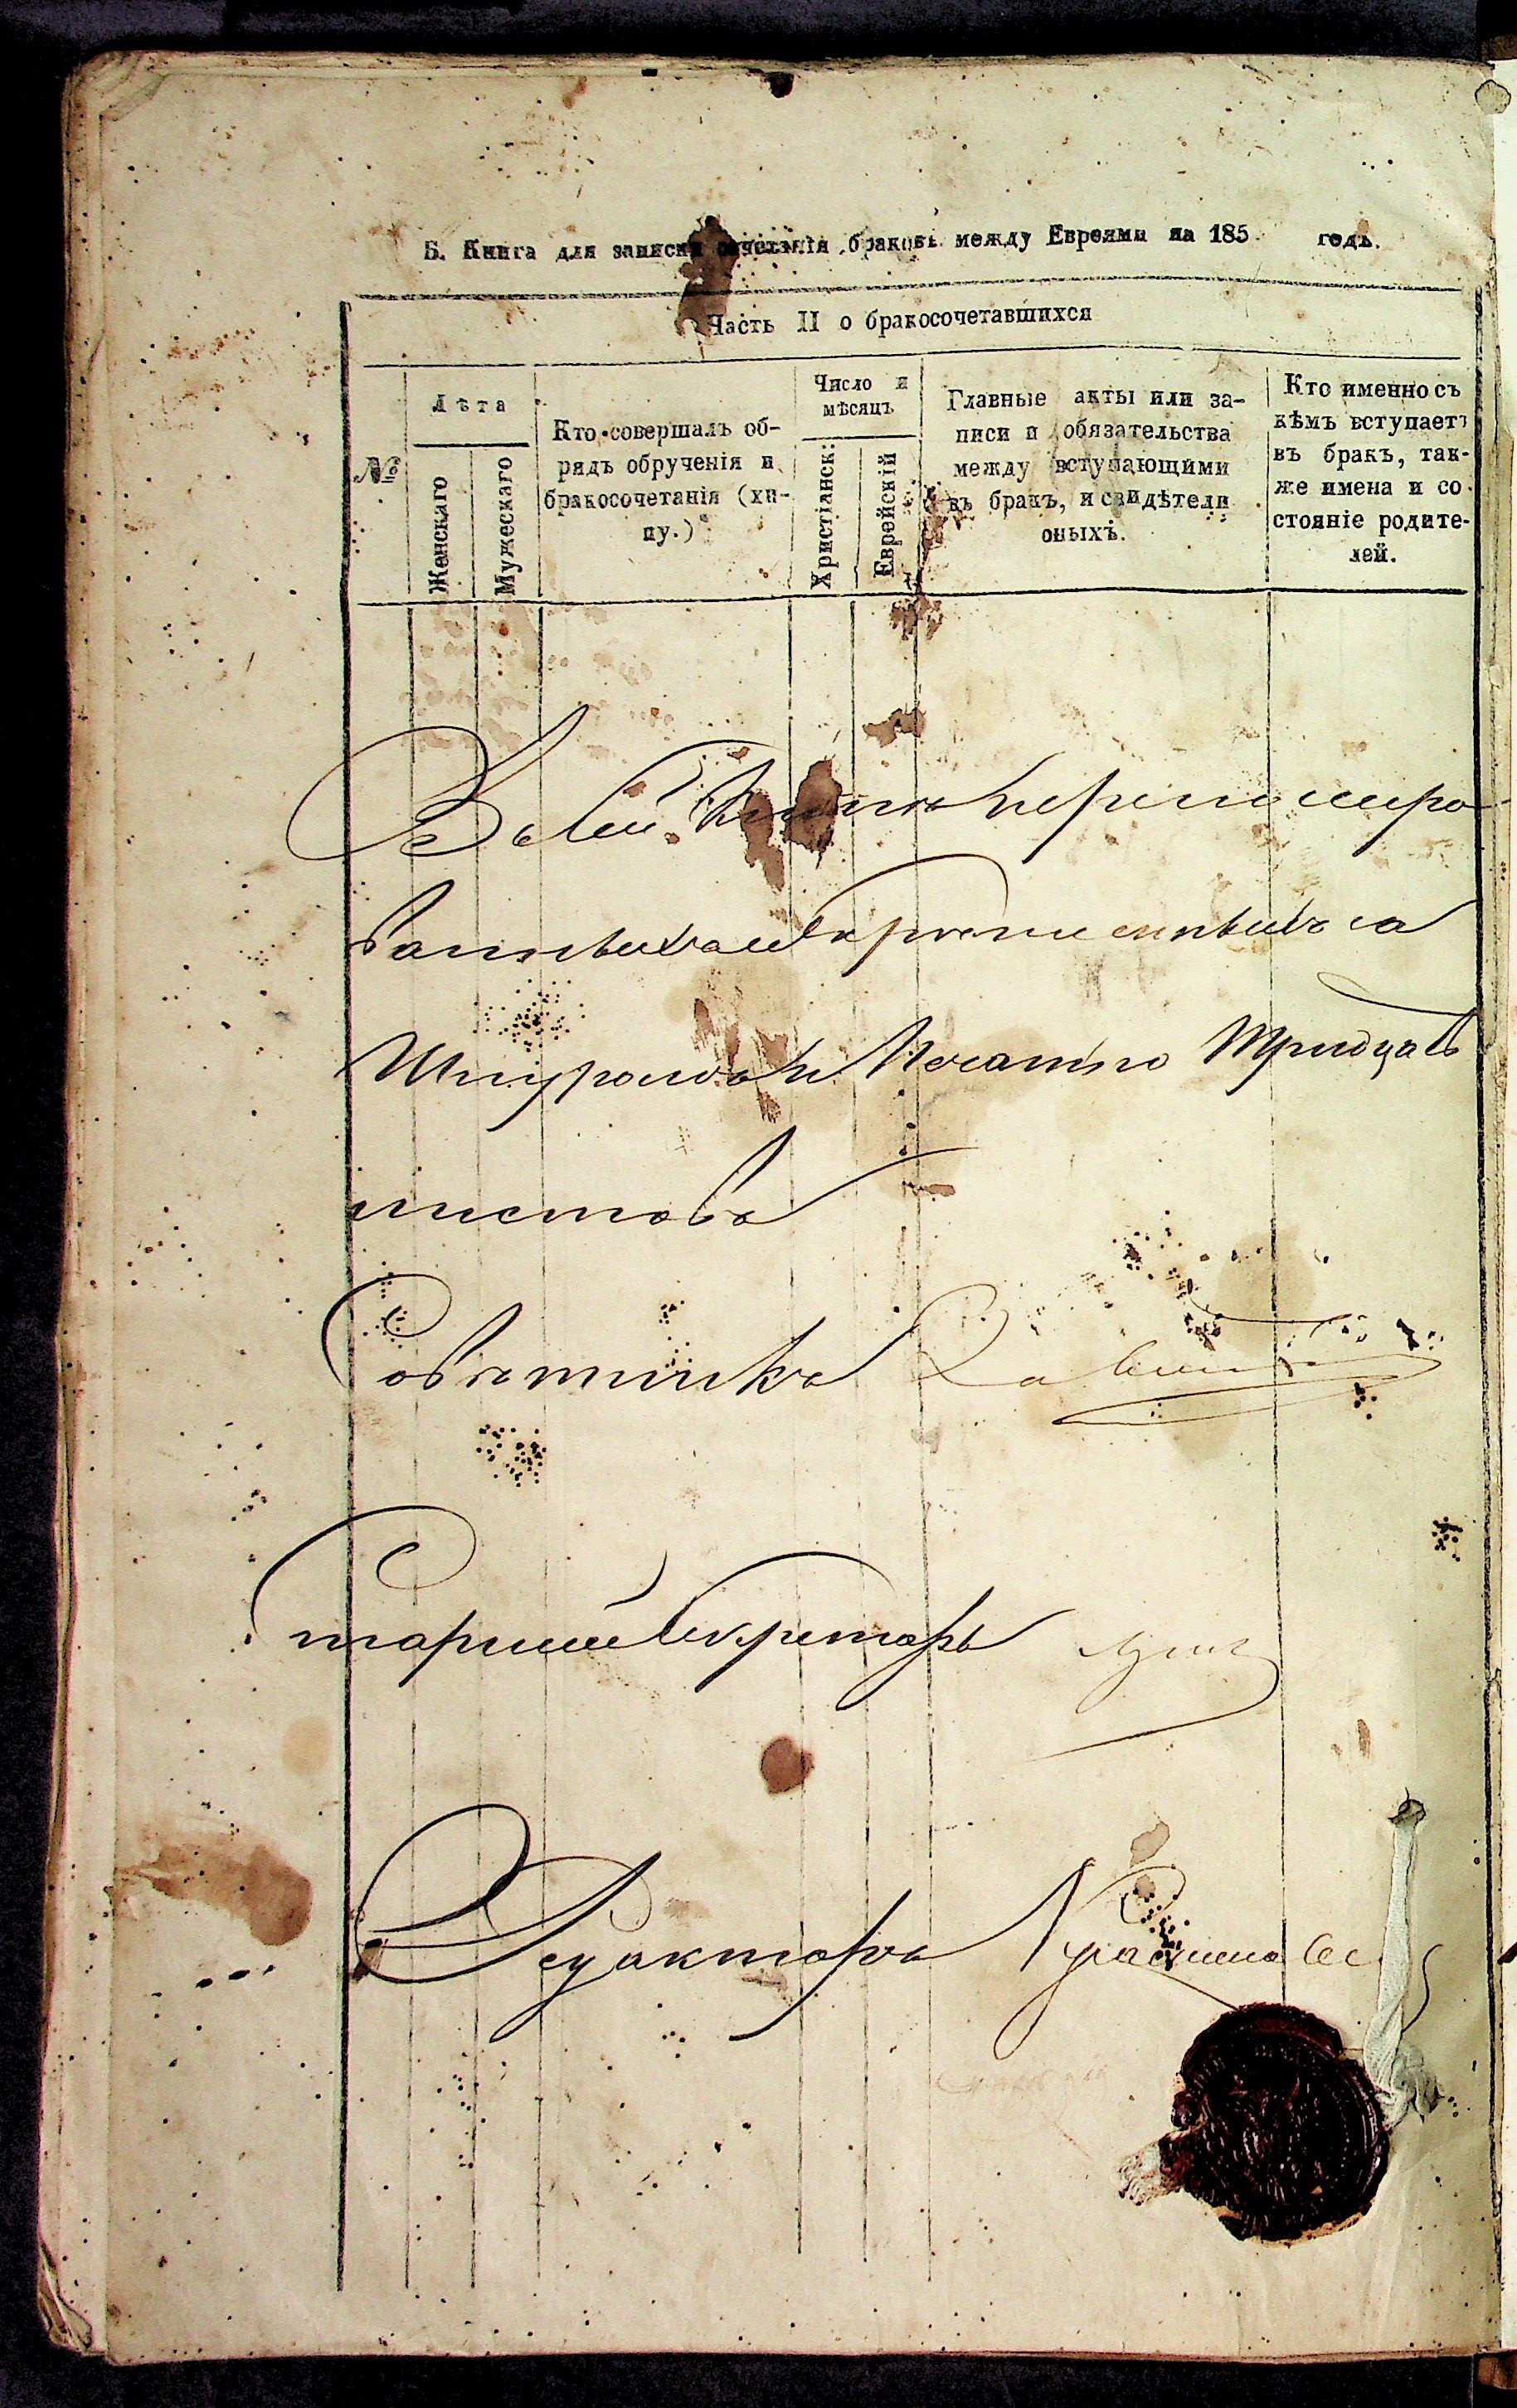 Б. Книга для записки сочетанія браковъ между Евреями на 185 годъ.
Часть II о бракосочетавшихся
№
Лѣта
Женскаго
Мужескаго
Кто совершалъ об-
рядъ обрученія и
бракосочетанія (ху-
пу.)
Число и
мѣсяцъ
Христіанск:
Еврейскій
Главные акты или за-
писи и обязательства
между вступающими
въ бракъ, и свидѣтели
оныхъ.
Кто именно съ
кѣмъ вступаетъ
въ бракъ, так-
же имена и со-
стояніе родите-
лей.
Въ сей Книгѣ перенумеро
ванныхъ и скрѣпленныхъ за
Шнуромъ и Печатью Тридцать
листовъ
Совѣтникъ
Старшій Секретарь
Редакторъ